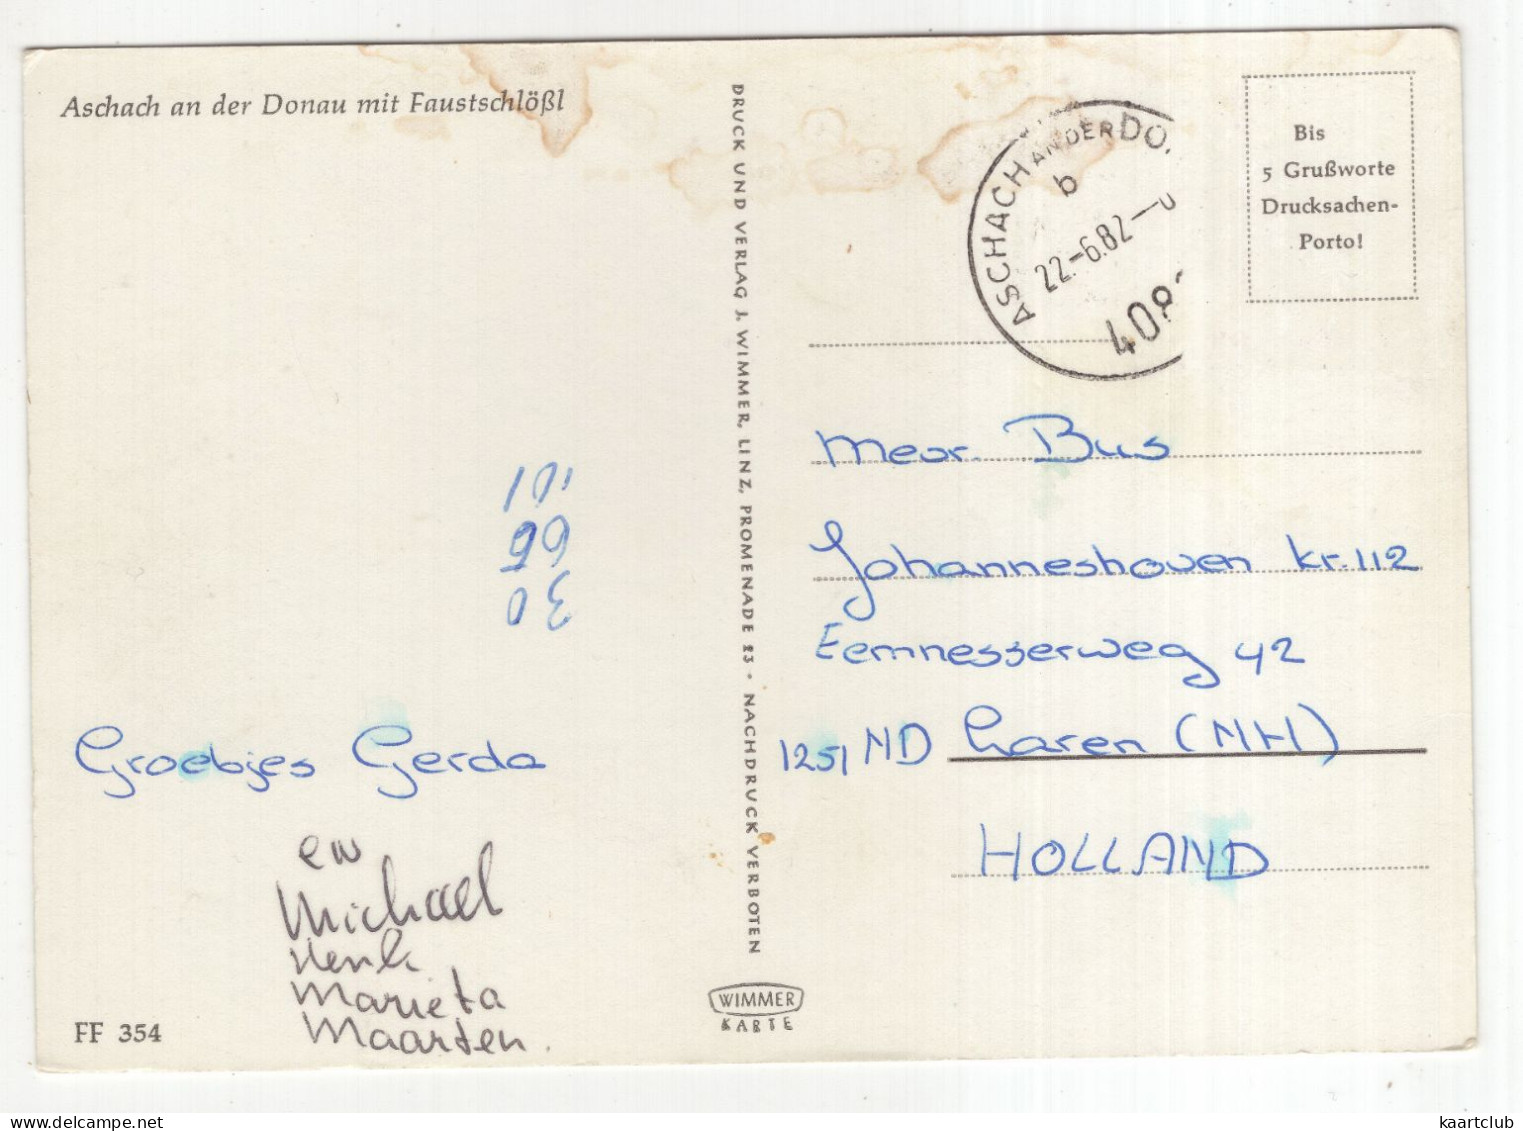 Aschach an der Donau mit Faustschlößl
101
66
30
Groebjes Gerda
en
Michael
Henk
Marieta
Maarten.
FF 354
DRUCK UND VERLAG J. WIMMER, LINZ, PROMENADE 23 • NACHDRUCK VERBOTEN
WIMMER
KARTE
ASCHACH AN DER DO.
b
22.-6.82
408
Bis
5 Grußworte
Drucksachen-
Porto!
Mevr. Bus
Johanneshoven kr. 112
Eemnesserweg 42
1251 ND Laren (NH)
HOLLAND
kaartclub
www.delcampe.net